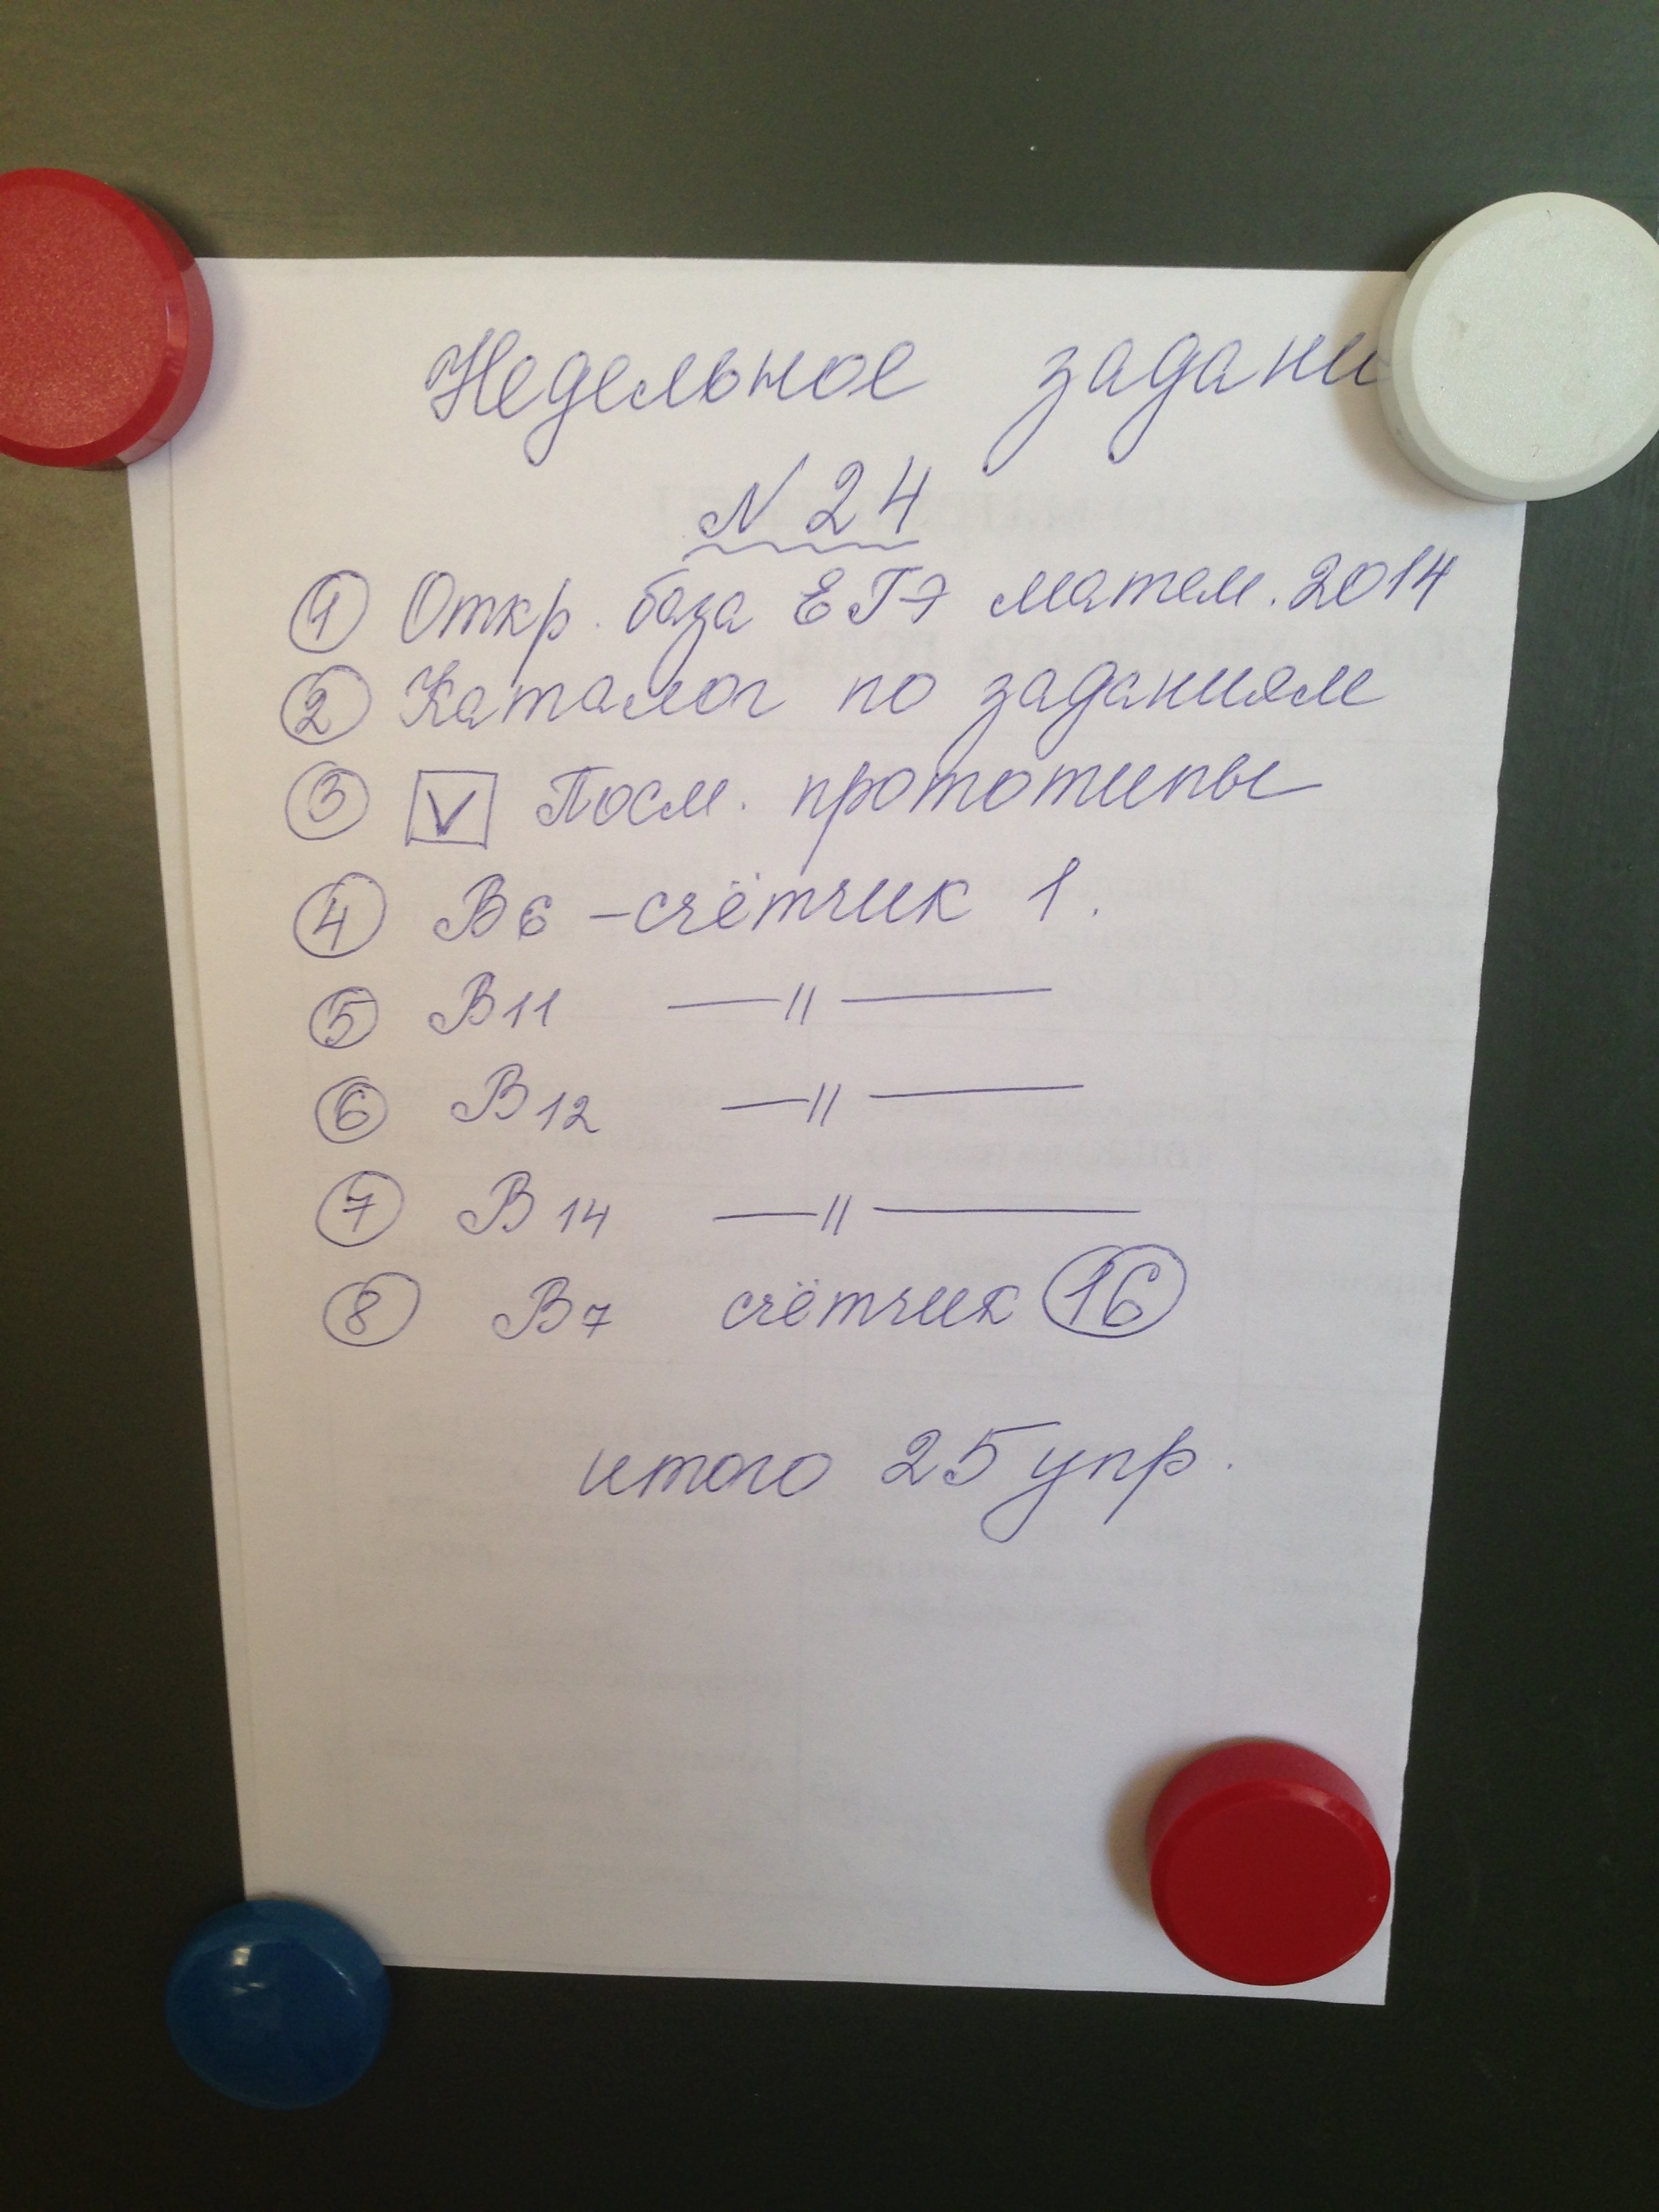 Недельное задани
N 24
1 Откр. база ЕГЭ матем. 2014
2 Каталог по заданиям
3 V Посм. прототипы
4 B6 – счётчик 1.
5 B11 —//—
6 B12 —//—
7 B14 —//—
8 B7 счётчик 16
итого 25 упр.